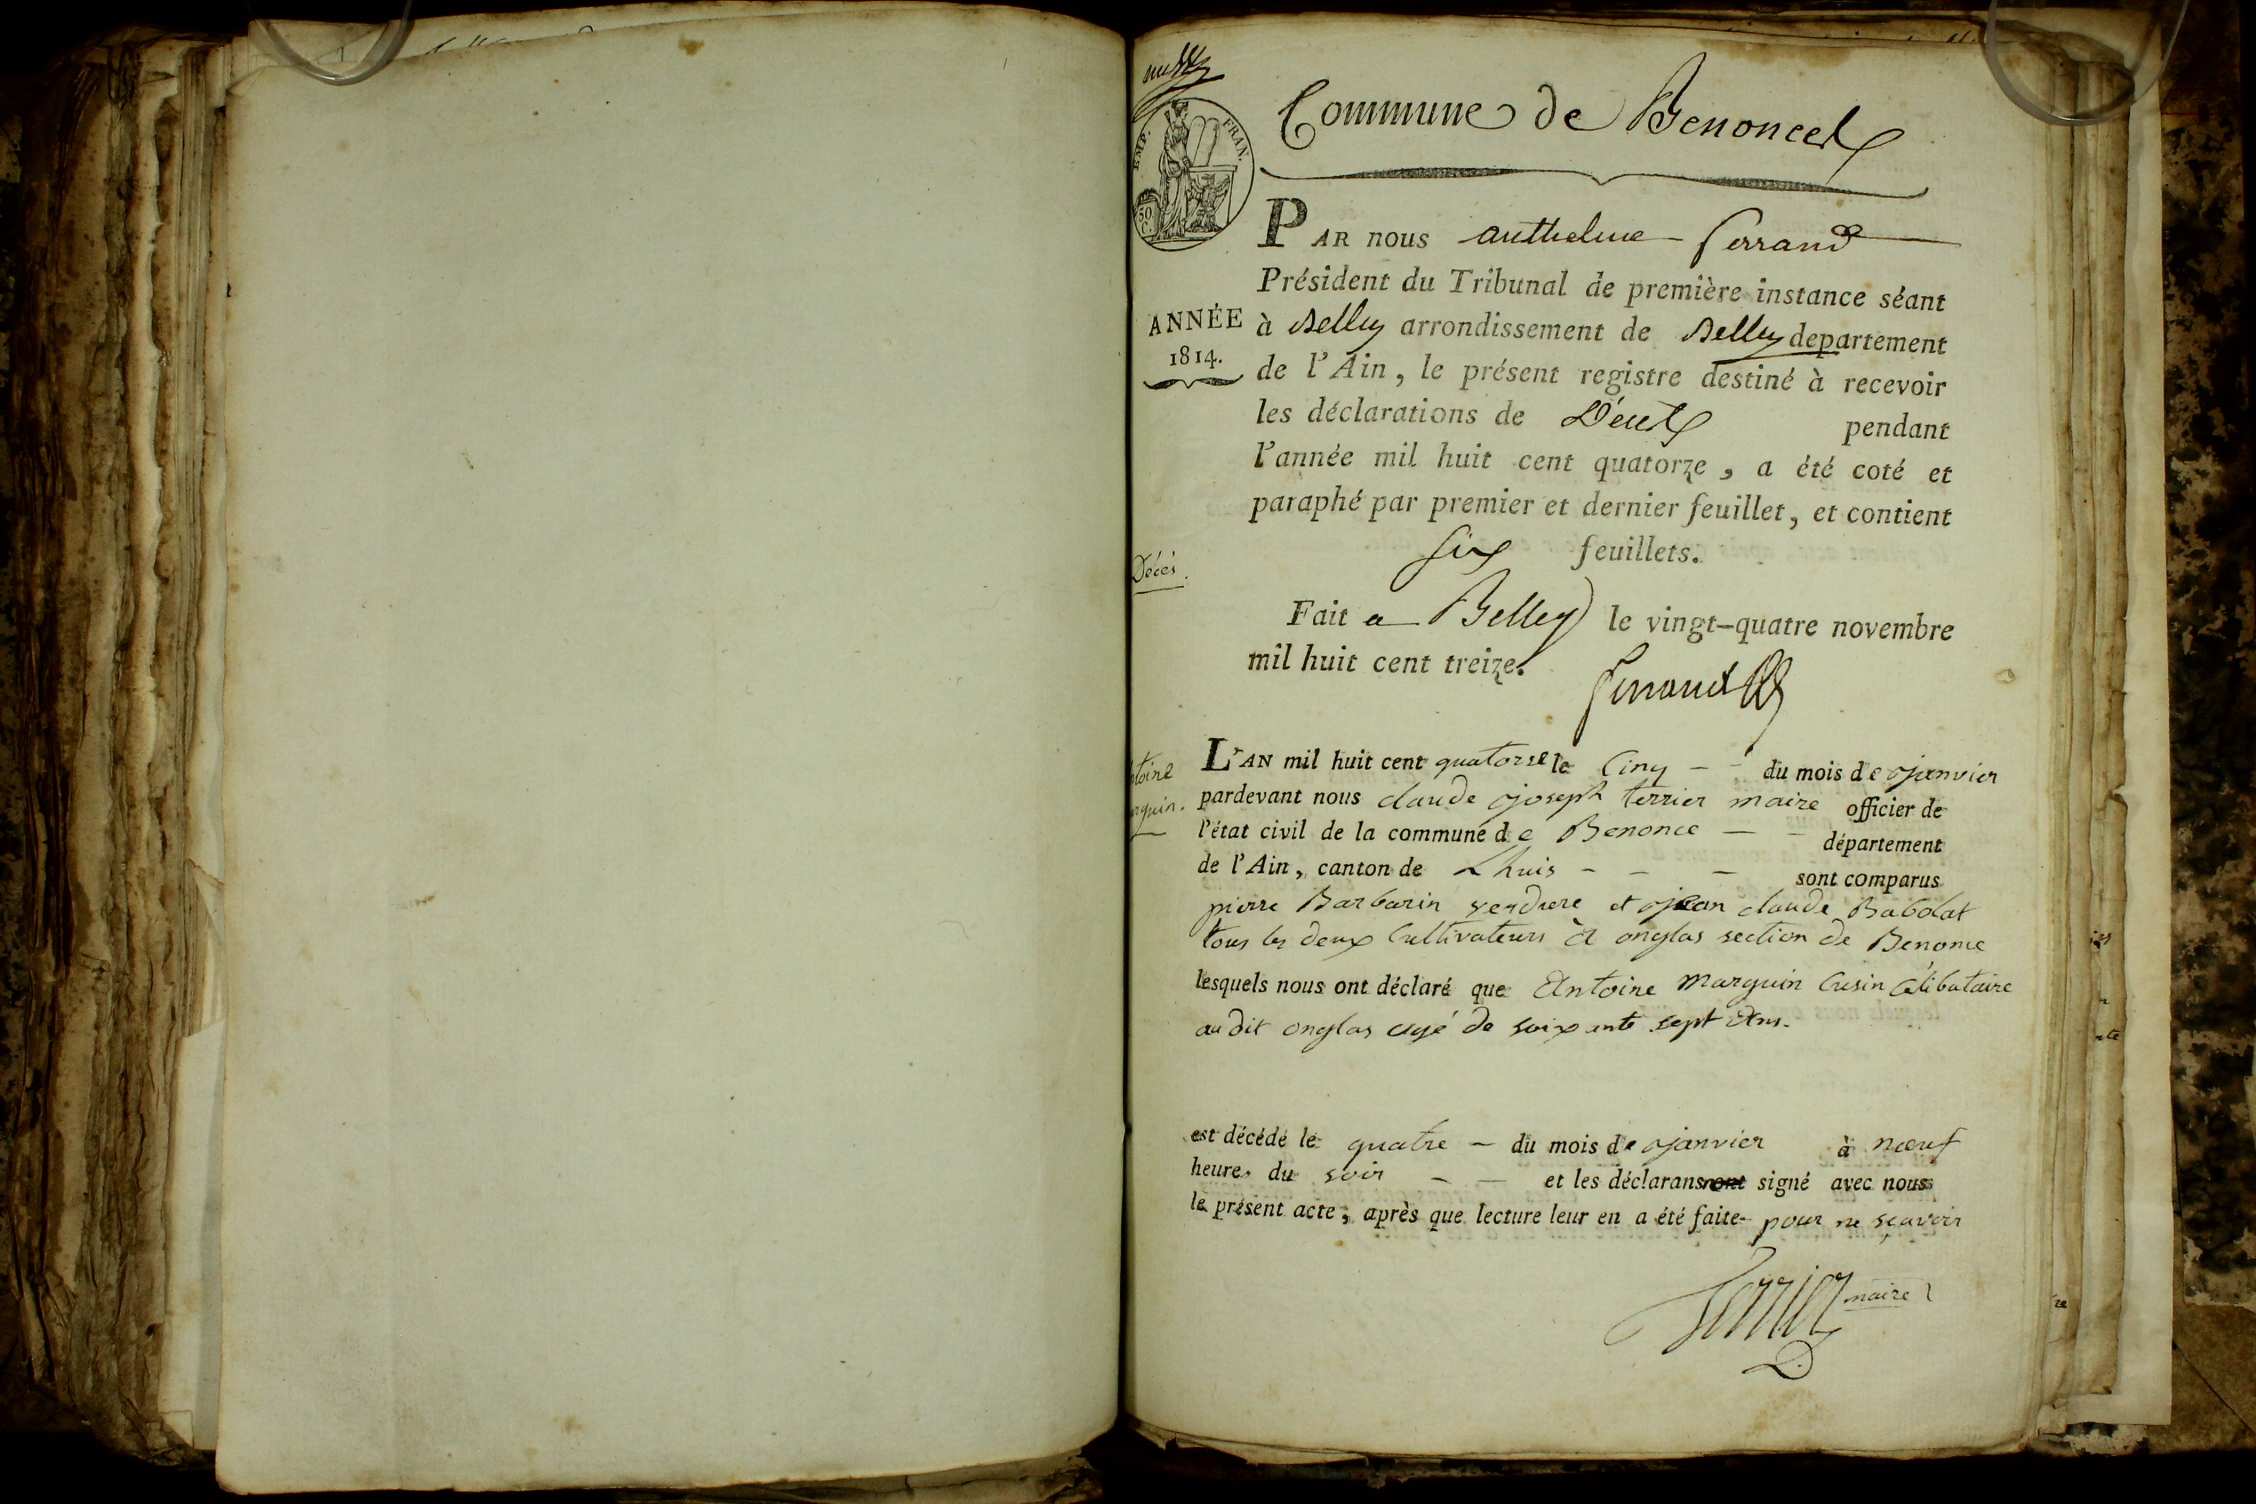 Commune de Benonce
EMP. FRAN.
50 C.
PAR nous anthelme ferrand
Président du Tribunal de première instance séant
ANNÉE
1814.
à Belley arrondissement de Belley departement
de l'Ain, le présent registre destiné à recevoir
les déclarations de Décès pendant
l'année mil huit cent quatorze, a été coté et
paraphé par premier et dernier feuillet, et contient
six feuillets.
Décès.
Fait a Belley le vingt-quatre novembre
mil huit cent treize.
ferrand
L'AN mil huit cent quatorze le Cinq du mois de janvier
pardevant nous claude joseph terrier maire officier de
l'état civil de la commune de Benonce département
de l'Ain, canton de Lhuis sont comparus
pierre Barbarin et jean claude Babolat
tous les deux Cultivateurs à onglas section de Benonce
lesquels nous ont déclaré que Antoine marguin Cusin Célibataire
au dit onglas agé de soixante sept Ans.
est décédé le quatre du mois de janvier à nœuf
heures du soir et les déclarans signé avec nous
le présent acte, après que lecture leur en a été faite pour ne sçavoir
Terrier maire